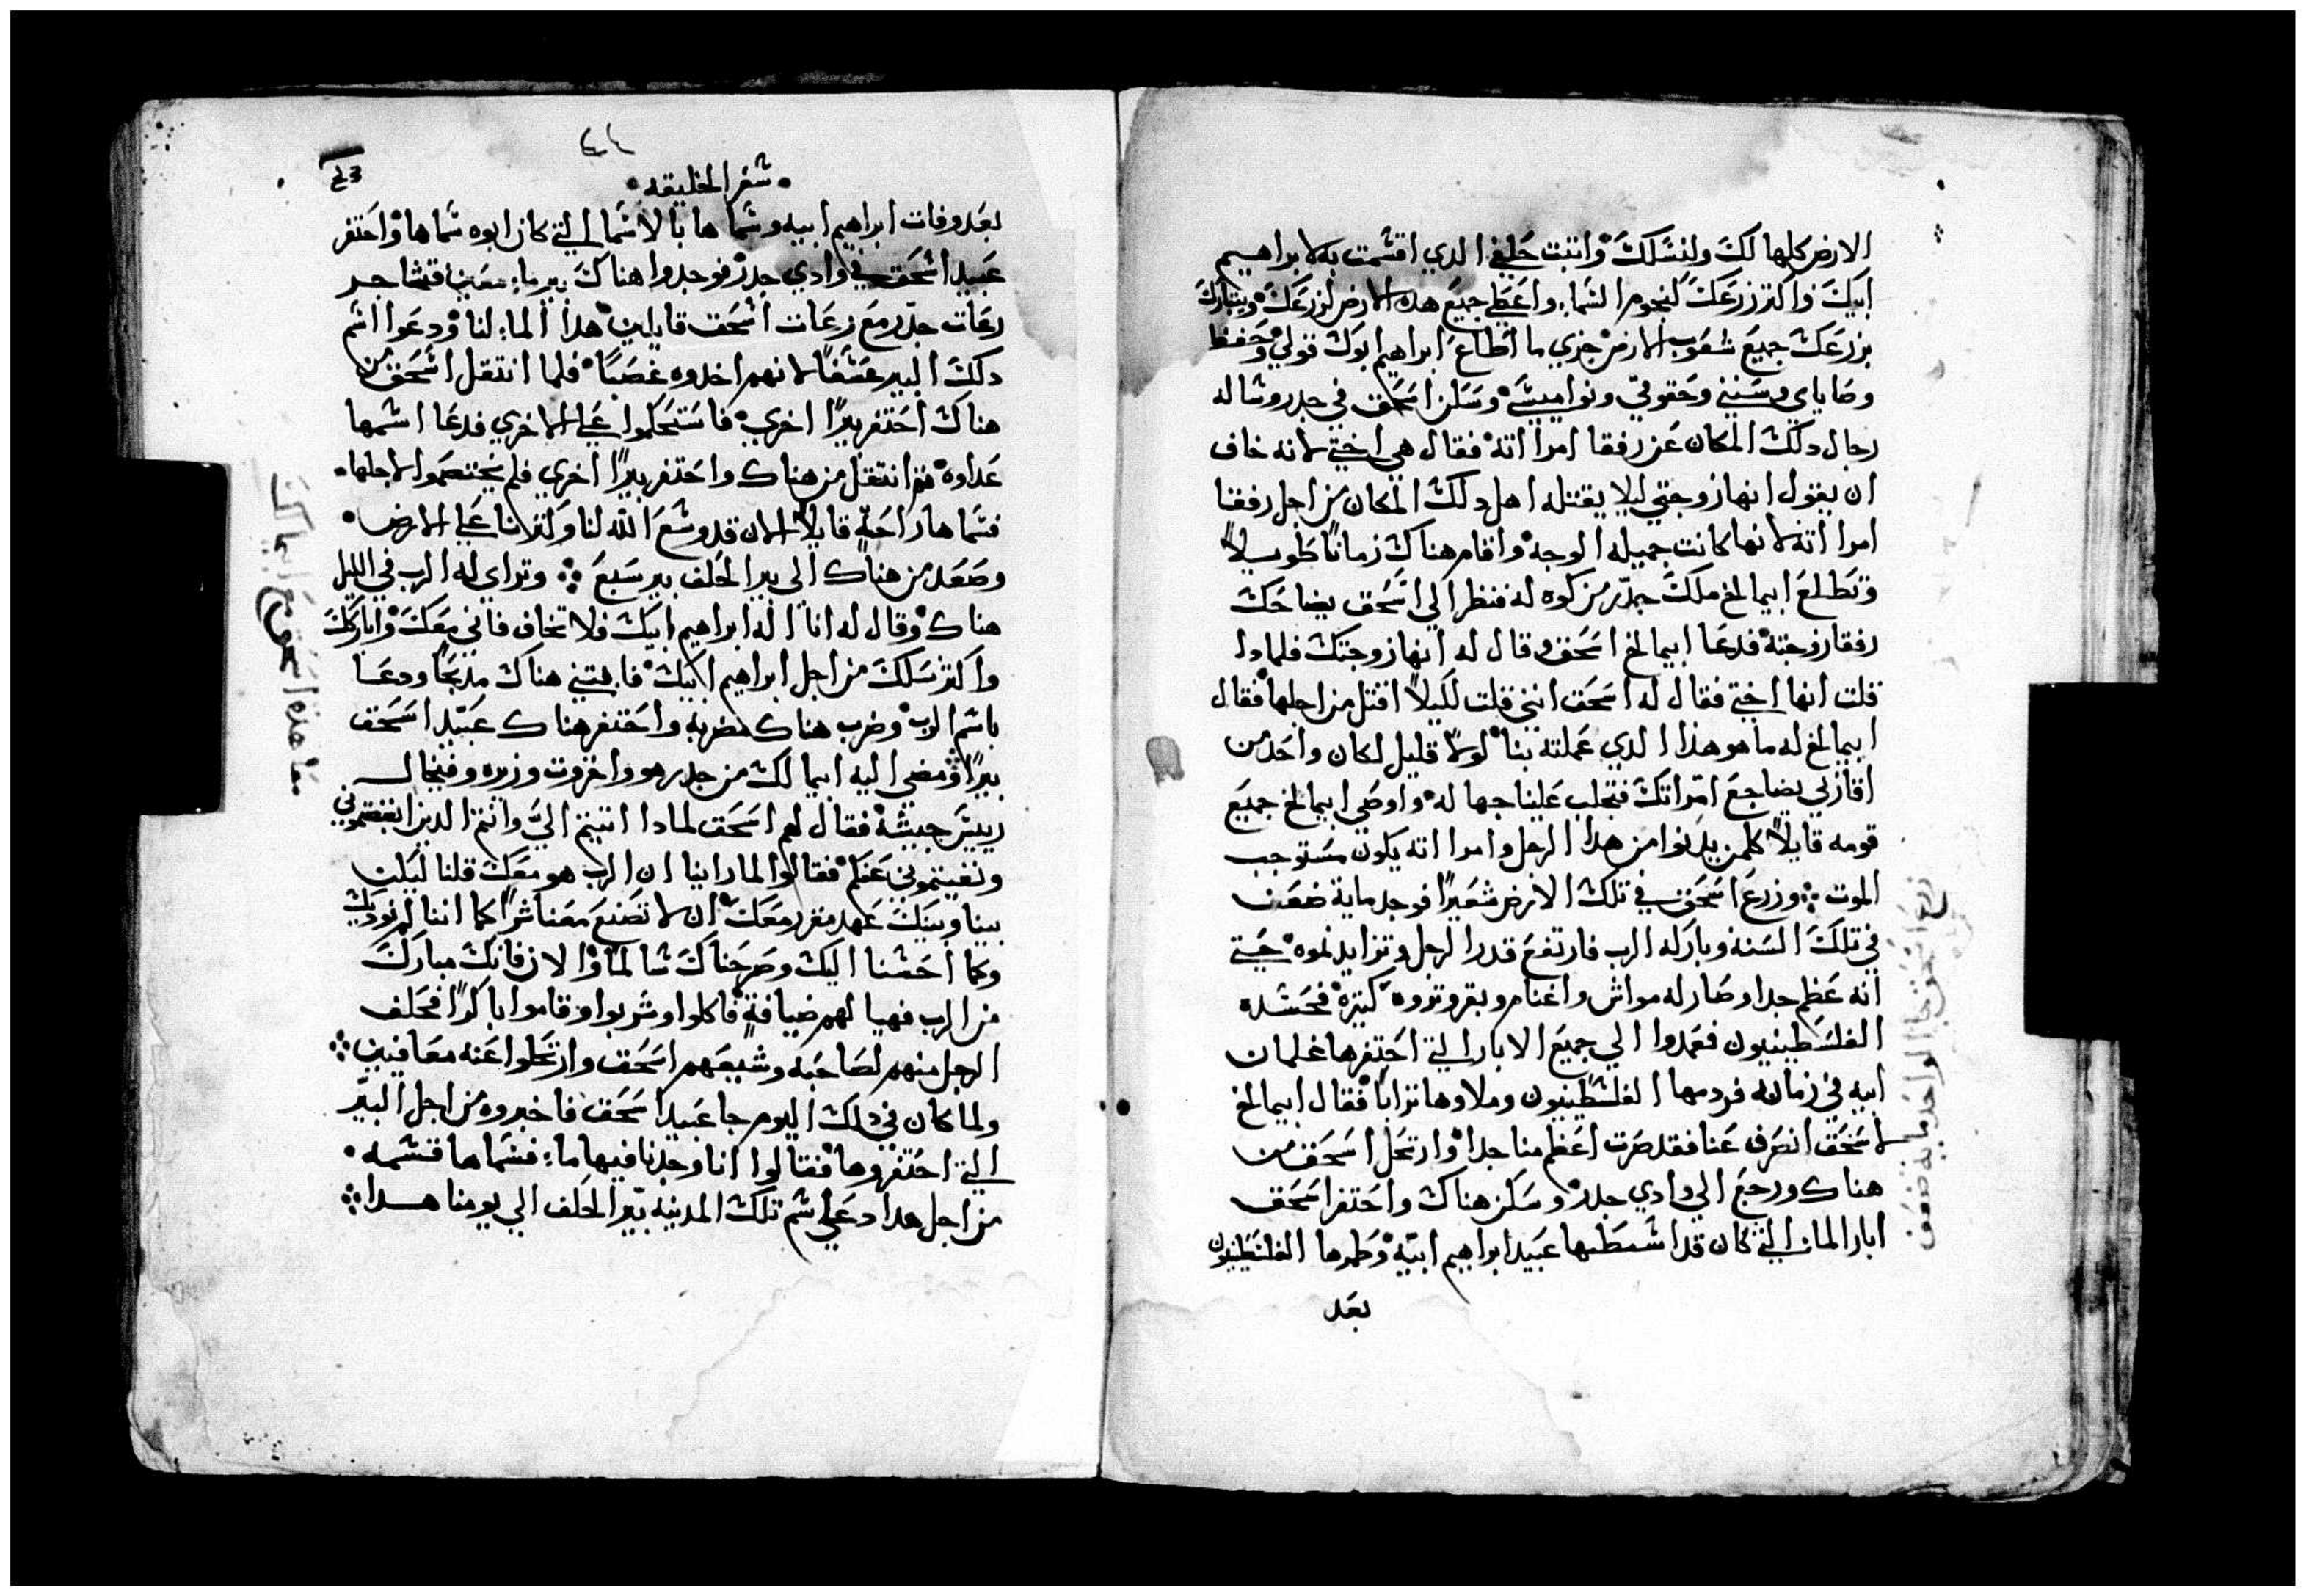 الارض كلها لك ولنسلك واتبت حلفي الدي اقسمت به لابراهيم
ابيك واكتر زرعك كنجوم السماء واعطي جميع هده الارض لزرعك ويتبارك
بزرعك جميع شعوب الارض جزي ما اطاع ابراهيم ابوك قولي وحفظ
وصاياي وسنني وحقوقي ونواميسي وسكن اسحق في جدر وساله
رجال دلك المكان عن رفقا امراته فقال هي اختي لانه خاف
ان يقول انها زوجتي ليلا يقتله اهل دلك المكان من اجل رفقا
امراته لانها كانت جميله الوجه واقام هناك زمانا طويلا
وتطلع ابيمالخ ملك جدر من كوه له فنظر الي اسحق يضاحك
رفقا زوجته فدعا ابيمالخ اسحق وقال له انها زوجتك فلمادا
قلت انها اختي فقال له اسحق انني قلت لكيلا اقتل من اجلها فقال
ابيمالخ له ما هو هذا الدي عملته بنا لولا قليل لكان واحد من
اقاربي يضاجع امراتك فتجلب علينا جهاله واوصي ابيمالخ جميع
قومه قايلا كلمن يدنوا من هدا الرجل وامراته يكون مستوجب
الموت وزرع اسحق في تلك الارض شعيرا فوجد ماية ضعف
في تلك السنه وباركه الرب فارتفع قدر الرجل وتزايد نموه حتي
انه عظم جدا وصار له مواش واغنام وبقر وتروه كتيره فحسده
الفلسطينيون فعمدوا الي جميع الابار التي احتفرها غلمان
ابيه في زمانه فردمها الفلسطينيون وملاوها ترابا فقال ابيمالخ
لاسحق انصرف عنا فقد صرت اعظم منا جدا وارتحل اسحق من
هناك ورجع الي وادي جدر وسكن هناك واحتفر اسحق
ابار الماء التي كان قد عبيد ابراهيم ابيه وطمرها الفلسطينيون
بعد
زرع اسحق جا الواحد ماية ضعف
٤٤
سفر الخليقه
بعد وفات ابراهيم ابيه وسماها بالاسما التي كان ابوه سماها واحتفر
عبيد اسحق في وادي جدر فوجدوا هناك بير ماء معين فتشاجر
رعات جدر مع رعات اسحق قايلين هدا الماء لنا ودعوا اسم
دلك البير عشقا لانهم اخدوه غصبا فلما انتقل اسحق من
هناك احتفر بيرا اخري فاستحكموا علي الاخري فدعا اسمها
عداوه تم انتقل من هناك واحتفر بيرا اخري فلم يختصموا لاجلها
فسماها راحة قايلا الان قد وسع الله لنا وكترنا علي الارض
وصعد من هناك الى بير الحلف بير سبع وتراي له الرب في الليل
هناك وقال له انا اله ابراهيم ابيك فلا تخاف فاني معك واباركك
واكتر نسلك من اجل ابراهيم ابيك فابتني هناك مدبحا ودعا
باسم الرب وضرب هناك مضربه واحتفر هناك عبيد اسحق
بيرا ومضى اليه ابيمالك من جدر هو واخزوت وزيره وفيخال
رييس جيشه فقال لهم اسحق لمادا اتيتم الي وانتم الدين ابغضتموني
ونفيتموني عنكم فقالوا لما راينا ان الرب هو معك قلنا ليكن
بيننا وبينك عهد مقرر معك ان لا تصنع معنا شرا كما اننا لم نوديك
وكما احسنا اليك وصرحناك سالما والان فانك مبارك
من الرب فهيا لهم ضيافة فاكلوا وشربوا وقاموا باكرا فحلف
الرجل منهم لصاحبه وشيعهم اسحق وارتحلوا عنه معافيين
ولما كان في دلك اليوم جا عبيد اسحق فاخبروه من اجل البير
التي احتفروها فقالوا انا وجدنا فيها ماء فسماها قسمه
من اجل هدا دعي اسم تلك المدينه بير الحلف الي يومنا هدا
معاهدة اسحق مع ابيمالك